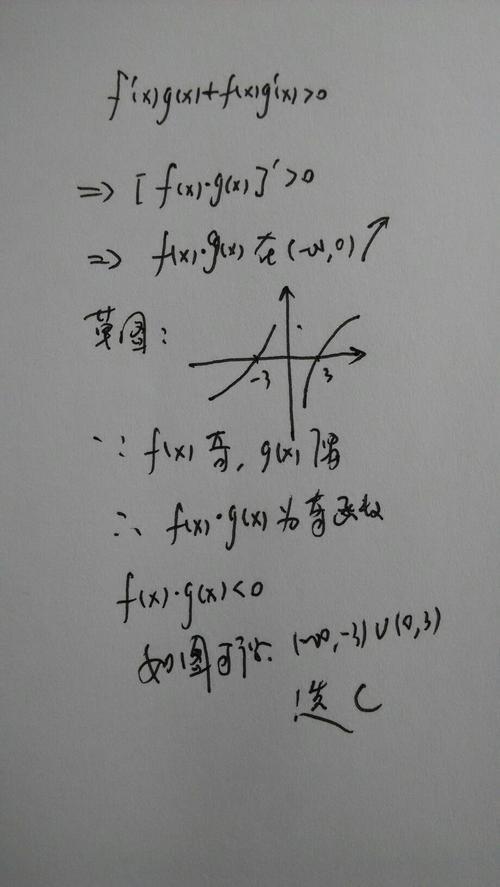 f'(x)g(x)+f(x)g'(x)>0
=> [f(x)·g(x)]'>0
=> f(x)·g(x)在(-∞,0)↗
草图:
-3 3
∵ f(x)奇,g(x)偶
∴ f(x)·g(x)为奇函数
f(x)·g(x)<0
如图可得: (-∞,-3)∪(0,3)
选C